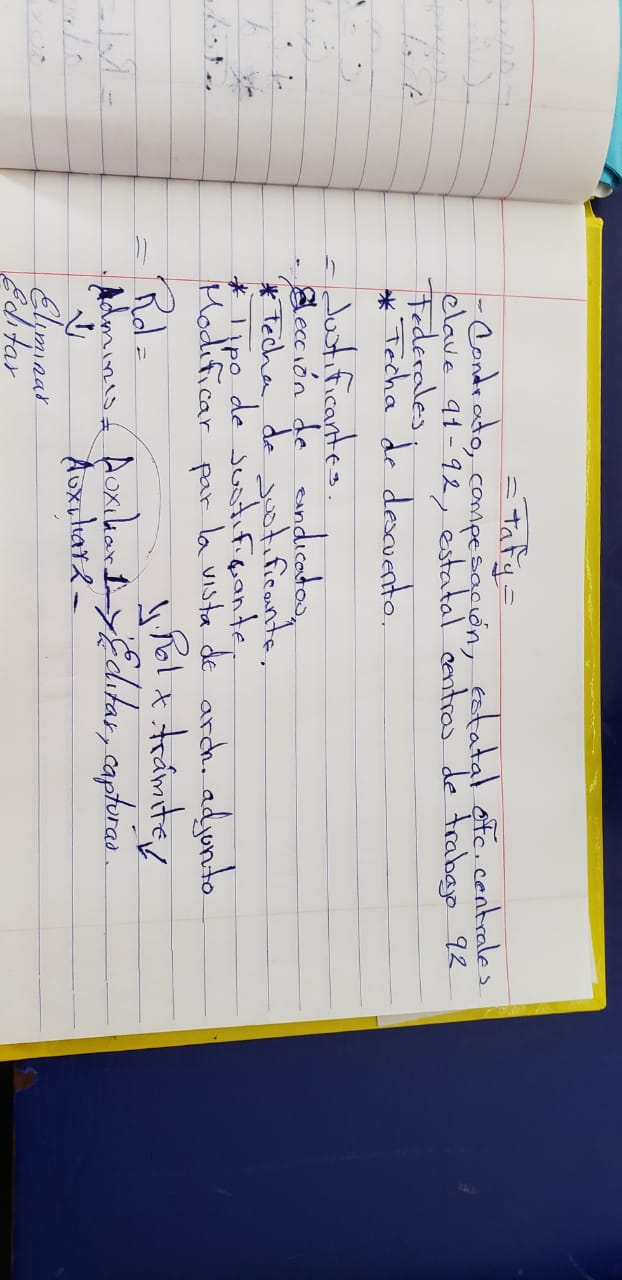 = Fafy =
- Contrato, compesación, estatal ofc. centrales
clave 91-92, estatal centros de trabajo 92
Federales.
* Fecha de descuento.
= Justificantes.
- Elección de sindicatos,
* Fecha de justificante.
* Tipo de justificante.
Modificar par la vista de arch. adjunto
y Rol x trámite ↓
= Rol =
. Adminis = Auxiliar 1 → Editar, capturas.
↓ Auxiliar 2 -
Eliminar
Editar